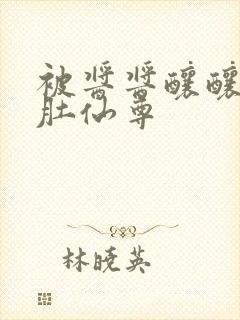 被酱酱酿酿
肚仙尊
林晓英